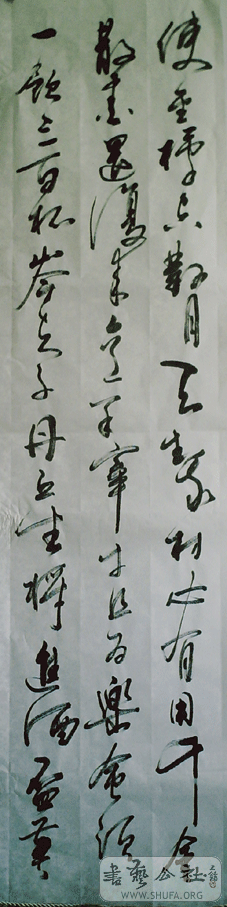 使金樽空對月天生我材必有用千金
散盡還復來烹羊宰牛且為樂會須
一飲三百杯岑夫子丹丘生將進酒盃莫
書藝公社
WWW.SHUFA.ORG